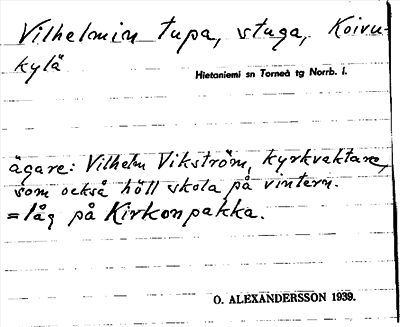 Vilhelmin tupa, stuga, Koivu-
kylä
Hietaniemi sn Torneå tg Norrb. l.
ägare: Vilhelm Vikström, kyrkvaktare,
som också höll skola på vintern.
= låg på Kirkonpakka.
O. ALEXANDERSSON 1939.